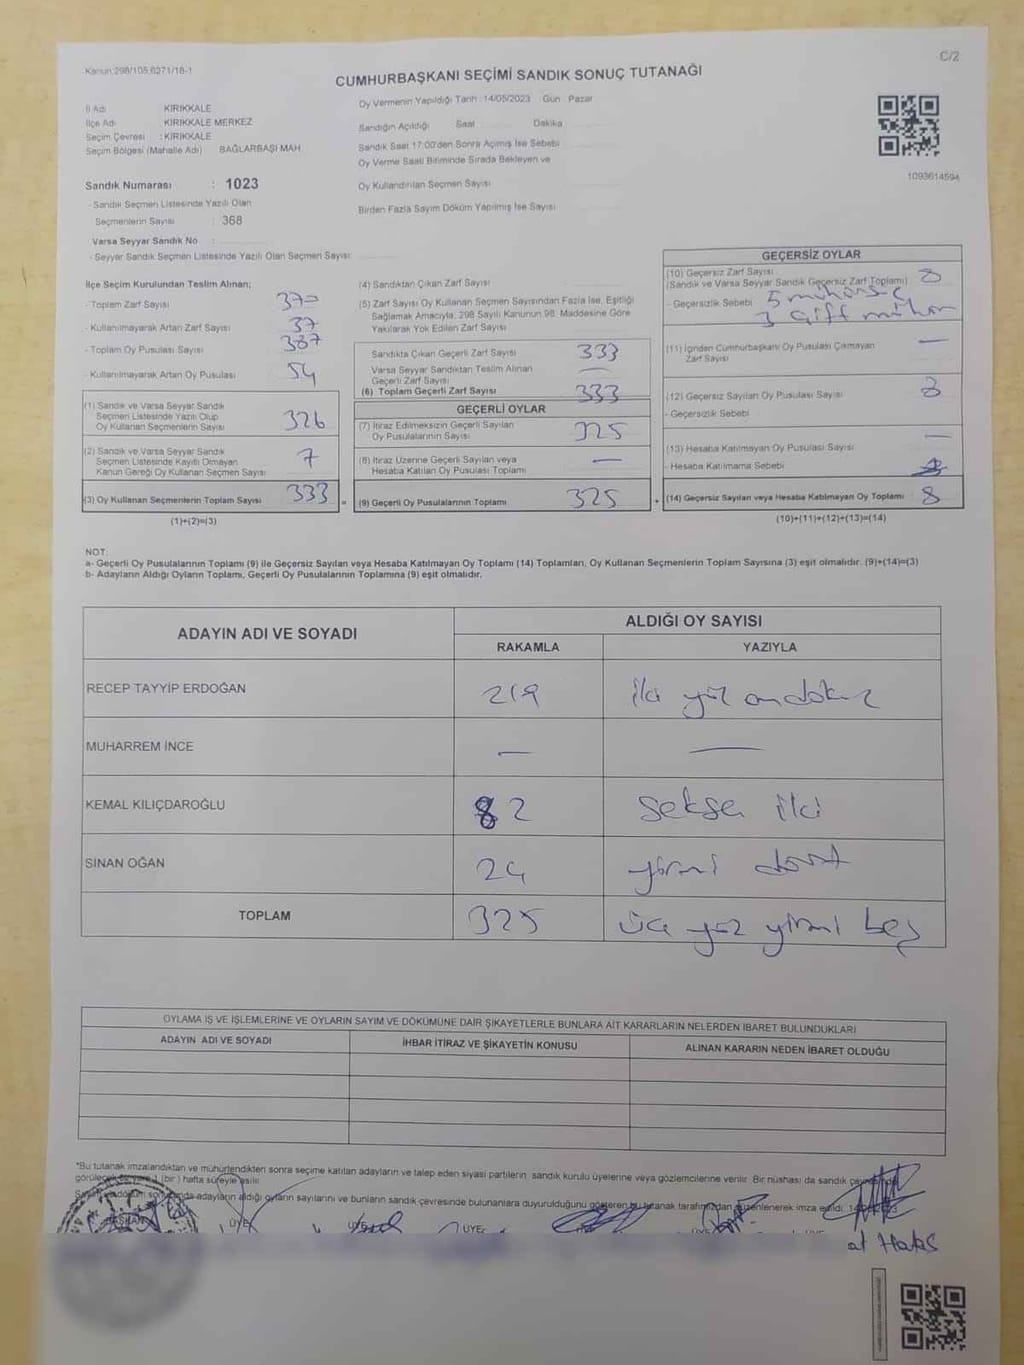 Kanun:298/105,6271/18-1
C/2
CUMHURBAŞKANI SEÇİMİ SANDIK SONUÇ TUTANAĞI
İl Adı KIRIKKALE
İlçe Adı KIRIKKALE MERKEZ
Seçim Çevresi : KIRIKKALE
Seçim Bölgesi (Mahalle Adı) BAĞLARBAŞI MAH.
Sandık Numarası : 1023
- Sandık Seçmen Listesinde Yazılı Olan
Seçmenlerin Sayısı : 368
Varsa Seyyar Sandık No :
- Seyyar Sandık Seçmen Listesinde Yazılı Olan Seçmen Sayısı
Oy Vermenin Yapıldığı Tarih : 14/05/2023 Gün : Pazar
Sandığın Açıldığı Saat Dakika
Sandık Saat 17:00'den Sonra Açılmış İse Sebebi
Oy Verme Saati Bitiminde Sırada Bekleyen ve
Oy Kullandırılan Seçmen Sayısı
Birden Fazla Sayım Döküm Yapılmış İse Sayısı
1093614594
İlçe Seçim Kurulundan Teslim Alınan;
- Toplam Zarf Sayısı 370
- Kullanılmayarak Artan Zarf Sayısı 37
- Toplam Oy Pusulası Sayısı 387
- Kullanılmayarak Artan Oy Pusulası 54
(1) Sandık ve Varsa Seyyar Sandık
Seçmen Listesinde Yazılı Olup
Oy Kullanan Seçmenlerin Sayısı 326
(2) Sandık ve Varsa Seyyar Sandık
Seçmen Listesinde Kayıtlı Olmayan
Kanun Gereği Oy Kullanan Seçmen Sayısı 7
(3) Oy Kullanan Seçmenlerin Toplam Sayısı 333 =
(1)+(2)=(3)
(4) Sandıktan Çıkan Zarf Sayısı
(5) Zarf Sayısı Oy Kullanan Seçmen Sayısından Fazla İse, Eşitliği
Sağlamak Amacıyla, 298 Sayılı Kanunun 98. Maddesine Göre
Yakılarak Yok Edilen Zarf Sayısı
Sandıkta Çıkan Geçerli Zarf Sayısı 333
Varsa Seyyar Sandıktan Teslim Alınan
Geçerli Zarf Sayısı —
(6) Toplam Geçerli Zarf Sayısı 333
GEÇERLİ OYLAR
(7) İtiraz Edilmeksizin Geçerli Sayılan
Oy Pusulalarının Sayısı 325
(8) İtiraz Üzerine Geçerli Sayılan veya
Hesaba Katılan Oy Pusulası Toplamı —
(9) Geçerli Oy Pusulalarının Toplamı 325 +
GEÇERSİZ OYLAR
(10) Geçersiz Zarf Sayısı
(Sandık ve Varsa Seyyar Sandık Geçersiz Zarf Toplamı) 8
- Geçersizlik Sebebi 5 mühürsüz
3 Çift mühür
(11) İçinden Cumhurbaşkanı Oy Pusulası Çıkmayan
Zarf Sayısı —
(12) Geçersiz Sayılan Oy Pusulası Sayısı
- Geçersizlik Sebebi
(13) Hesaba Katılmayan Oy Pusulası Sayısı —
- Hesaba Katılmama Sebebi
(14) Geçersiz Sayılan veya Hesaba Katılmayan Oy Toplamı 8
(10)+(11)+(12)+(13)=(14)
NOT:
a- Geçerli Oy Pusulalarının Toplamı (9) ile Geçersiz Sayılan veya Hesaba Katılmayan Oy Toplamı (14) Toplamları, Oy Kullanan Seçmenlerin Toplam Sayısına (3) eşit olmalıdır. (9)+(14)=(3)
b- Adayların Aldığı Oyların Toplamı, Geçerli Oy Pusulalarının Toplamına (9) eşit olmalıdır.
ADAYIN ADI VE SOYADI
ALDIĞI OY SAYISI
RAKAMLA YAZIYLA
RECEP TAYYİP ERDOĞAN 219 iki yüz ondokuz
MUHARREM İNCE — —
KEMAL KILIÇDAROĞLU 82 Seksen iki
SİNAN OĞAN 24 yirmi dört
TOPLAM 325 üç yüz yirmi beş
OYLAMA İŞ VE İŞLEMLERİNE VE OYLARIN SAYIM VE DÖKÜMÜNE DAİR ŞİKAYETLERLE BUNLARA AİT KARARLARIN NELERDEN İBARET BULUNDUKLARI
ADAYIN ADI VE SOYADI
İHBAR İTİRAZ VE ŞİKAYETİN KONUSU
ALINAN KARARIN NEDEN İBARET OLDUĞU
*Bu tutanak imzalandıktan ve mühürlendikten sonra seçime katılan adayların ve talep eden siyasi partilerin sandık kurulu üyelerine veya gözlemcilerine verilir. Bir nüshası da sandık
görülecek bir yere 1 (bir) hafta süreyle asılır.
adayların aldığı oyların sayılarını ve bunların sandık çevresinde bulunanlara duyurulduğunu gösteren bu tutanak tarafımızdan düzenlenerek imza edildi.
BAŞKAN ÜYE ÜYE ÜYE